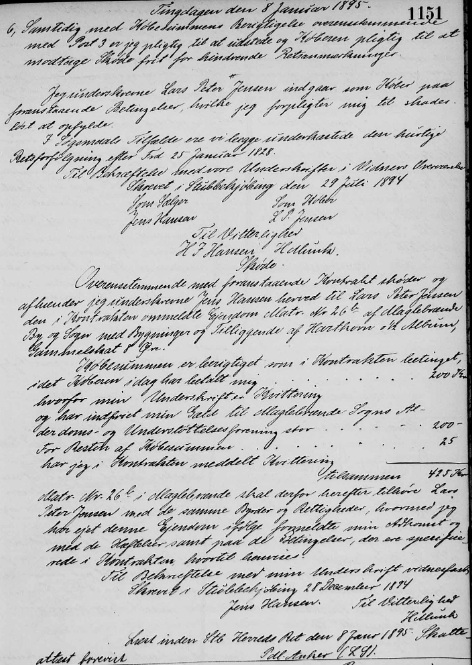 Tingdagen den 8 Januar 1895.
1151
6, Samtidig med Kjøbesummens Berigtigelse overensstemmende
med Post 3 er jeg pligtig til at udstede og Køberen pligtig til at
modtage Skøde frit for hindrende Retsanmærkninger.
Jeg underskrevne Lars Peter Jensen indgaar som Køber paa
foranstaaende Betingelser, hvilke jeg forpligter mig til skades-
løst at opfylde.
I Søgsmaals Tilfælde ere vi begge underkastede den hurtige
Retsforfølgning efter Frd 25 Januar 1828.
Til Bekræftelse med vore Underskrifter i Vidners Overværelse
Skrevet i Stubbekjøbing den 29 Juli 1894
Som Sælger Som Køber
Jens Hansen L. P. Jensen
Til Vitterlighed
H F Hansen
Skøde.
Overensstemmende med foranstaaende Kontrakt skøder og
afhænder jeg underskrevne Jens Hansen herved til Lars Peter Jensen
den i Kontrakten ommeldte Ejendom Matr. No 26 af Maglebrænde
By og Sogn med Bygninger og Tilliggende af Hartkorn Album,
Gammelskat
Købesummen er berigtiget som i Kontrakten betinget,
idet Køberen i dag har betalt mig . . . . . . 200 Kr
hvorfor min Underskrift er Kvittering
og har indfriet min Gæld til Maglebrænde Sogns Al-
derdoms- og Understøttelsesforening stor . . . . . 200-
For Resten af Købesummen . . . . . 25
har jeg i Kontrakten meddelt Kvittering
Tilsammen 425 Kr
Matr. Nr. 26 i Maglebrænde skal derfor herefter tilhøre Lars
Peter Jensen med de samme Byrder og Rettigheder, hvormed jeg
har ejet denne Ejendom ifølge min Adkomst og
med de Hæftelser samt paa de Betingelser, der ere specifice-
rede i Kontrakten hvortil henvises.
Til Bekræftelse med min Underskrift vidnesfast
Skrevet i Stubbekjøbing 28 December 1894
Jens Hansen. Til Vitterlighed
Læst inden Stb Herreds Ret den 8 Janr 1895. Skatte
attest forevist